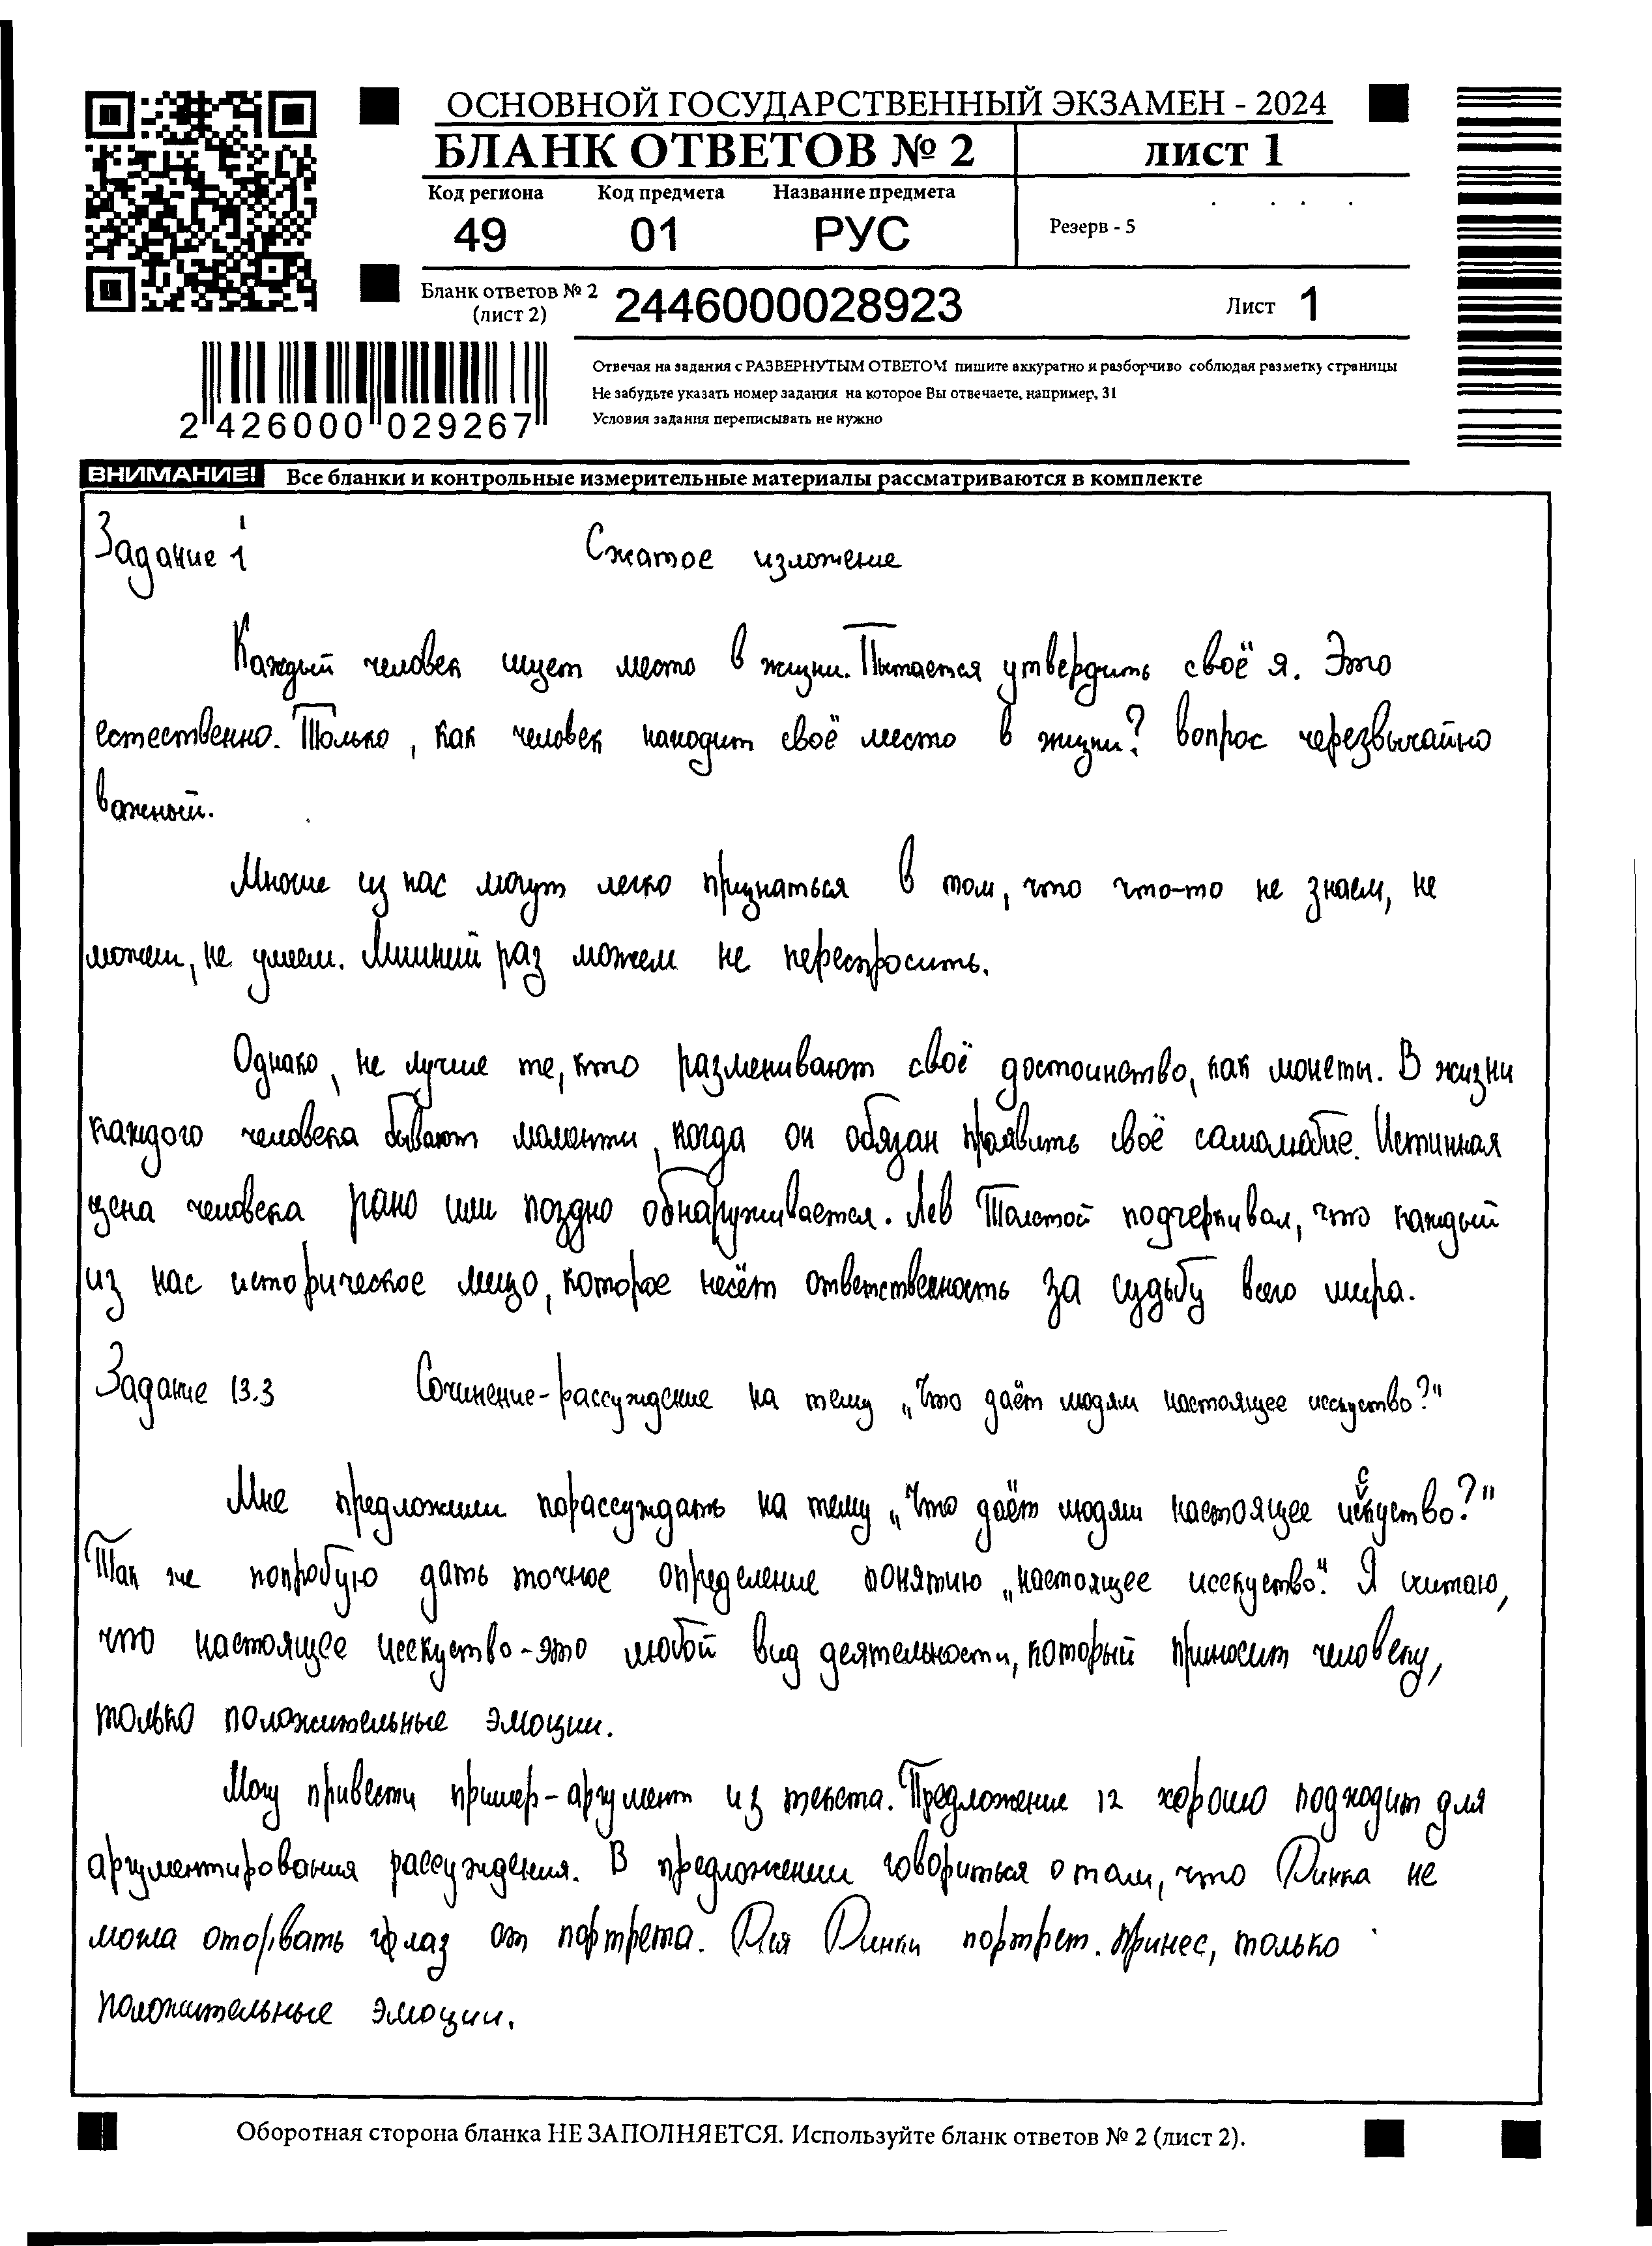 ОСНОВНОЙ ГОСУДАРСТВЕННЫЙ ЭКЗАМЕН - 2024
БЛАНК ОТВЕТОВ № 2
лист 1
Код региона Код предмета Название предмета
49 01 РУС
Резерв - 5
Бланк ответов № 2
(лист 2)
2446000028923
Лист 1
Отвечая на задания с РАЗВЕРНУТЫМ ОТВЕТОМ пишите аккуратно и разборчиво соблюдая разметку страницы
Не забудьте указать номер задания на которое Вы отвечаете, например, 31
Условия задания переписывать не нужно
2 426000 029267
ВНИМАНИЕ! Все бланки и контрольные измерительные материалы рассматриваются в комплекте
Задание 1 Сжатое изложение
Каждый человек ищет место в жизни. Пытается утвердить своё я. Это
естественно. Только, как человек находит своё место в жизни? вопрос черезвычайно
важный.
Многие из нас могут легко признаться в том, что что-то не знаем, не
можем, не умеем. Лишний раз можем не переспросить.
Однако, не лучше те, кто разменивают своё достоинство, как монеты. В жизни
каждого человека бывают моменты, когда он обязан проявить своё самолюбие. Истинная
цена человека рано или поздно обнаруживается. Лев Толстой подчеркивал, что каждый
из нас историческое лицо, которое несёт ответственность за судьбу всего мира.
Задание 13.3 Сочинение-рассуждение на тему „Что даёт людям настоящее исскуство?"
Мне предложили порассуждать на тему „Что даёт людям настоящее исскуство?"
Так же попробую дать точное определение понятию „настоящее исскуство". Я считаю,
что настоящее исскуство-это любой вид деятельности, который приносит человеку,
только положительные эмоции.
Могу привести пример-аргумент из текста. Предложение 12 хорошо подходит для
аргументирования рассуждения. В предложении говориться о том, что Динка не
могла оторвать глаз от портрета. Для Динки портрет принес, только
положительные эмоции.
Оборотная сторона бланка НЕ ЗАПОЛНЯЕТСЯ. Используйте бланк ответов № 2 (лист 2).